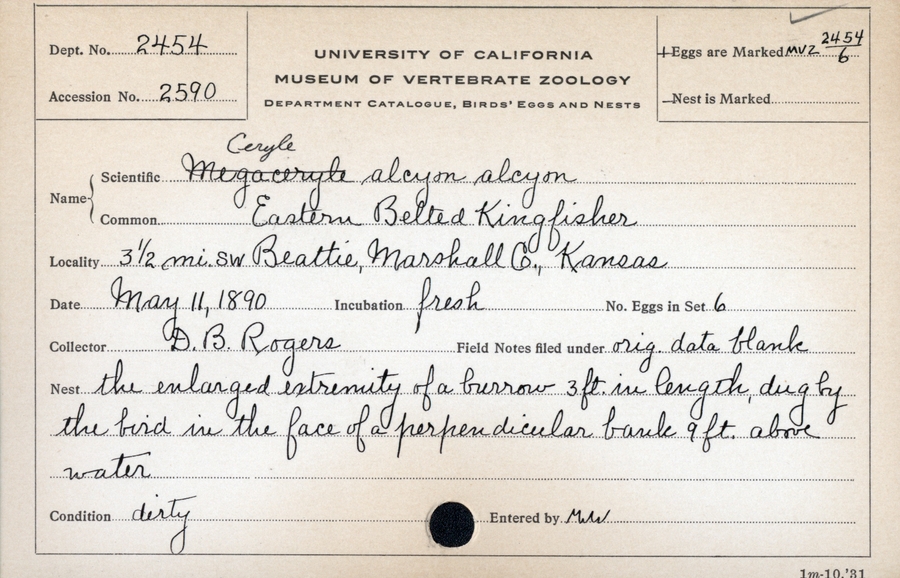 Dept. No. 2454
Accession No. 2590
UNIVERSITY OF CALIFORNIA
MUSEUM OF VERTEBRATE ZOOLOGY
DEPARTMENT CATALOGUE, BIRDS' EGGS AND NESTS
+Eggs are Marked MVZ 2454/6
–Nest is Marked
Ceryle
Name { Scientific Megaceryle alcyon alcyon
Common Eastern Belted Kingfisher
Locality 3½ mi. SW Beattie, Marshall Co., Kansas
Date May 11, 1890 Incubation fresh No. Eggs in Set 6
Collector D. B. Rogers Field Notes filed under orig. data blank
Nest the enlarged extremity of a burrow 3 ft. in length, dug by
the bird in the face of a perpendicular bank 9 ft. above
water
Condition dirty Entered by MW
1m-10,'31